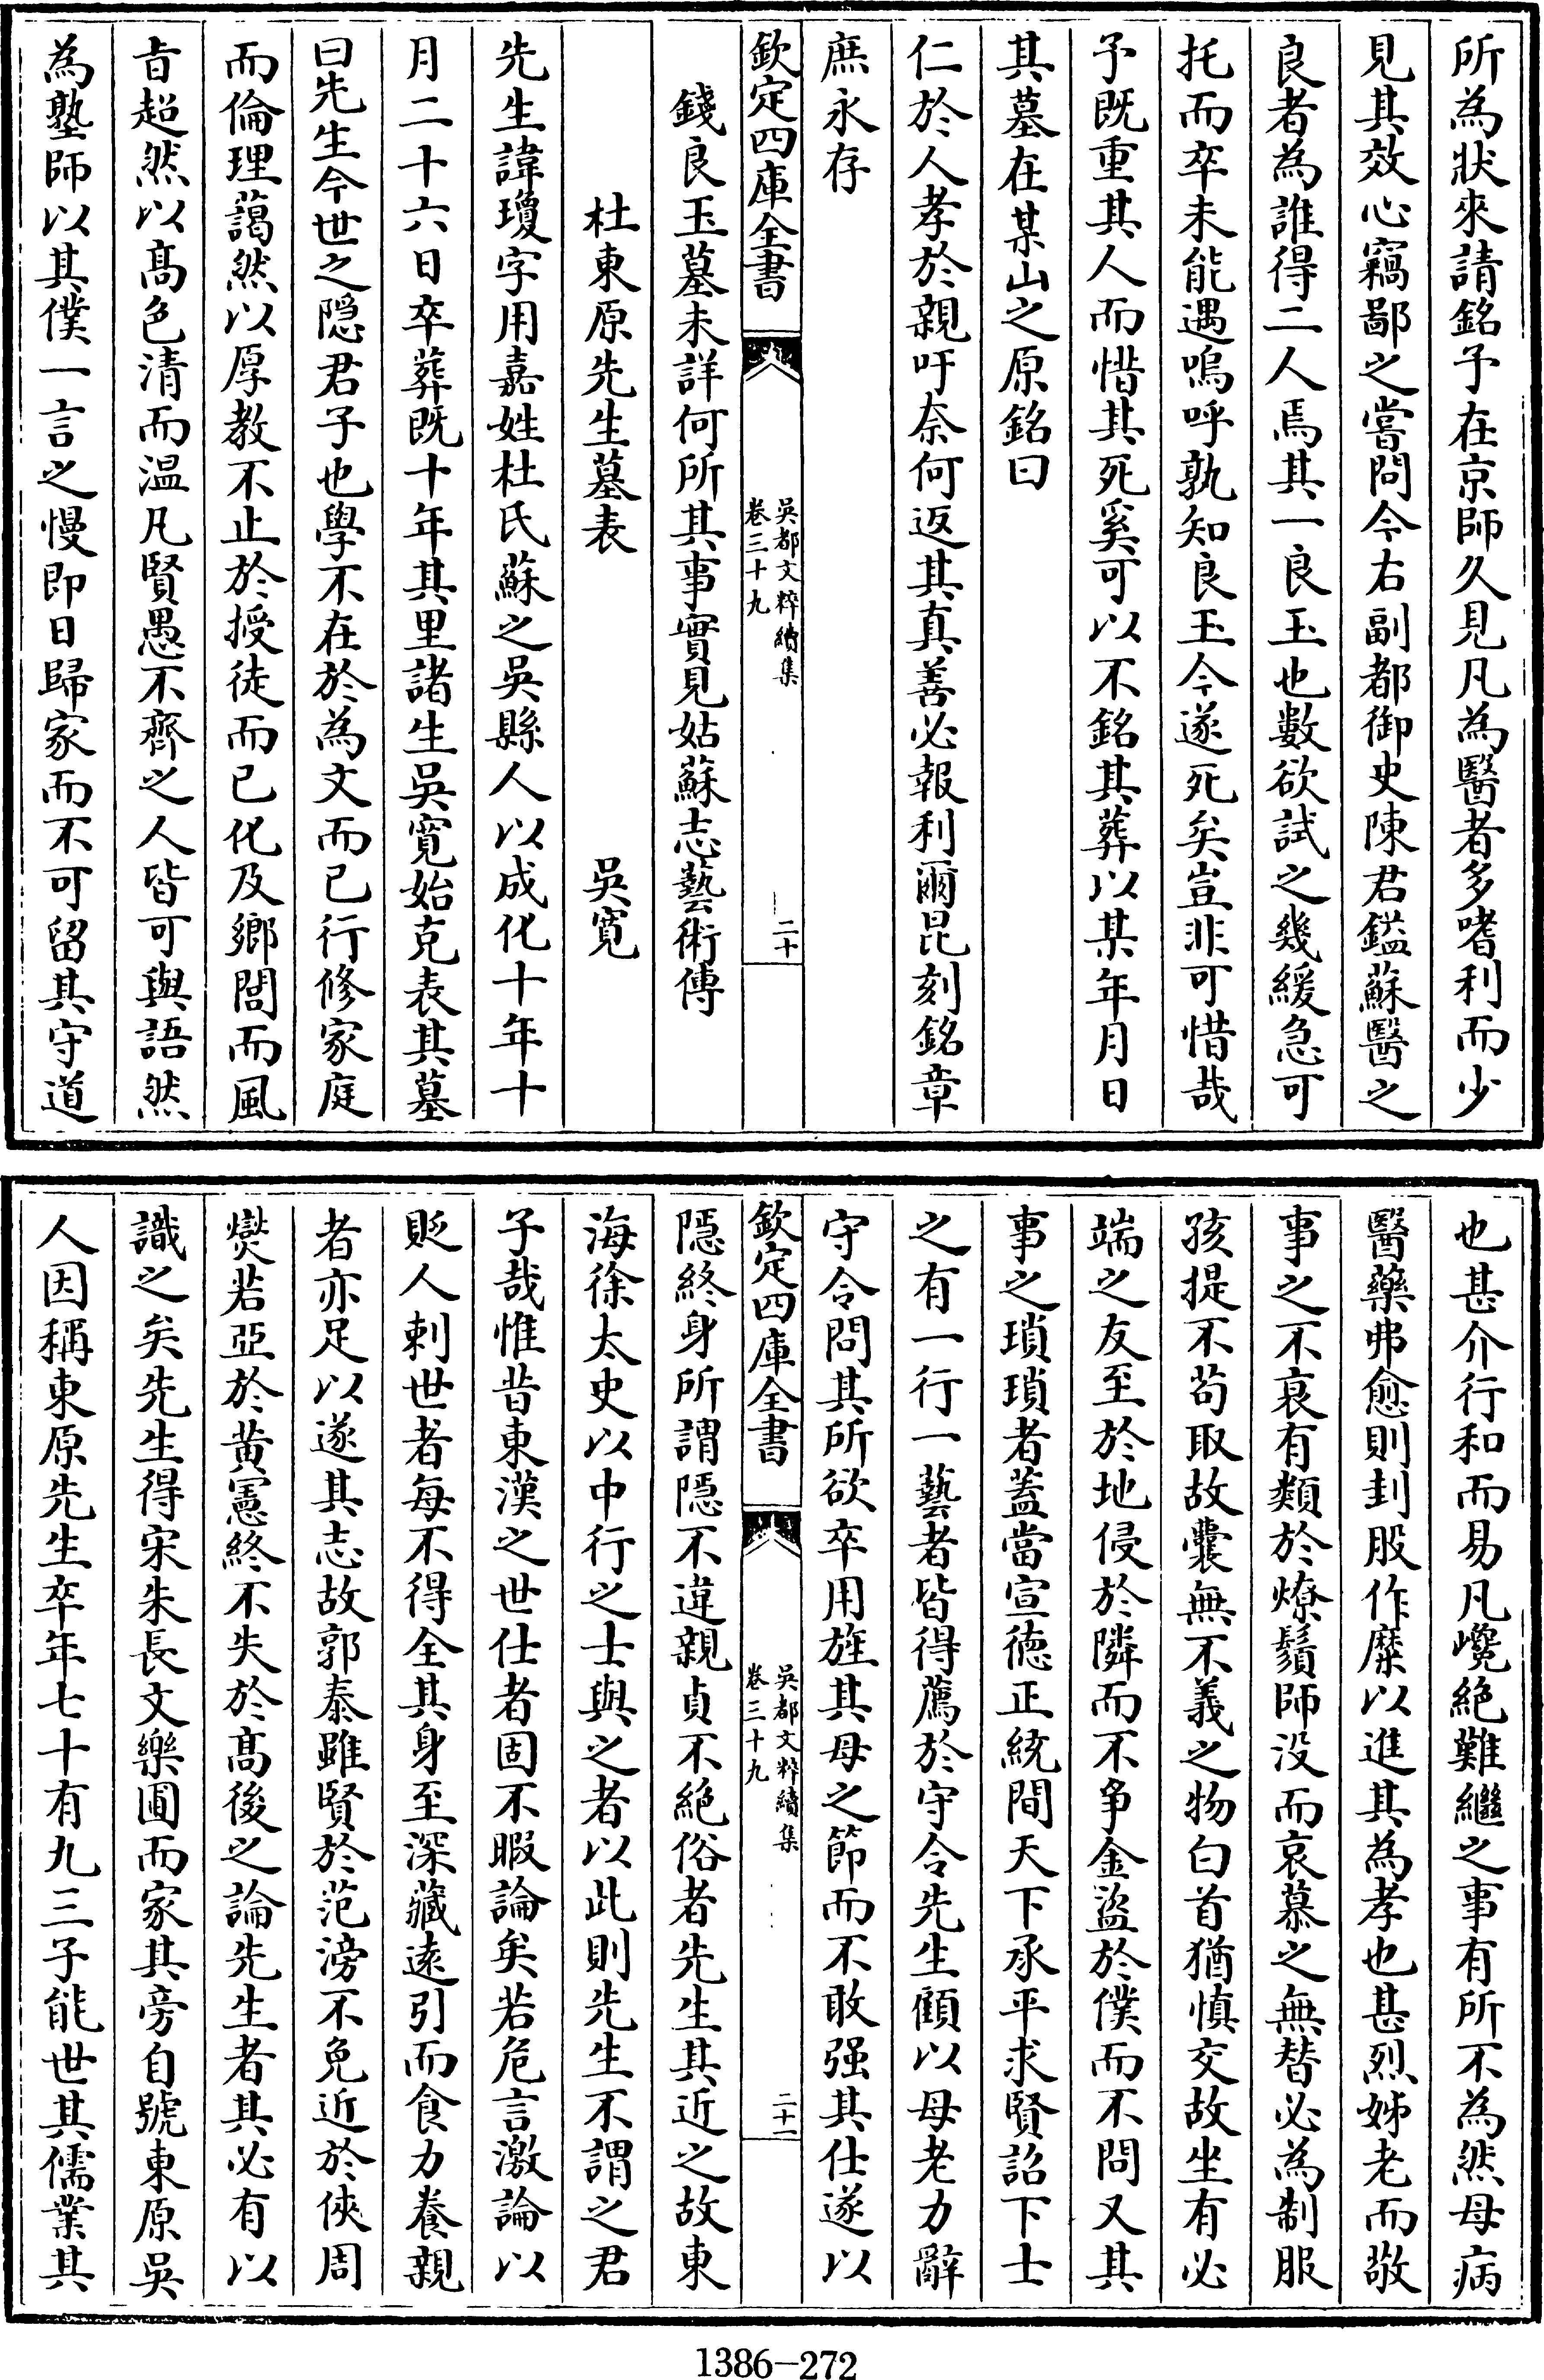 所為狀來請銘予在京師久見凡為醫者多嗜利而少
見其效心竊鄙之嘗問今右副都御史陳君鎰蘇醫之
良者為誰得二人焉其一良玉也數欲試之幾緩急可
托而卒未能遇嗚呼孰知良玉今遂死矣豈非可惜哉
予既重其人而惜其死奚可以不銘其葬以某年月日
其墓在某山之原銘曰
仁於人孝於親吁奈何返其真善必報利爾昆刻銘章
庶永存
欽定四庫全書
吳都文粹續集
卷三十九
二十
錢良玉墓未詳何所其事實見姑蘇志藝術傳
杜東原先生墓表 吳寬
先生諱瓊字用嘉姓杜氏蘇之吳縣人以成化十年十
月二十六日卒葬既十年其里諸生吳寬始克表其墓
曰先生今世之隠君子也學不在於為文而已行修家庭
而倫理藹然以厚教不止於授徒而已化及鄉閭而風
旨超然以髙色清而温凡賢愚不齊之人皆可與語然
為塾師以其僕一言之慢即日歸家而不可留其守道
也甚介行和而易凡巉絶難繼之事有所不為然母病
醫藥弗愈則刲股作糜以進其為孝也甚烈姊老而敬
事之不衰有類於燎鬚師没而哀慕之無替必為制服
孩提不苟取故囊無不義之物白首猶慎交故坐有必
端之友至於地侵於隣而不爭金盜於僕而不問又其
事之瑣瑣者蓋當宣德正統間天下承平求賢詔下士
之有一行一藝者皆得薦於守令先生顧以母老力辭
守令問其所欲卒用旌其母之節而不敢强其仕遂以
欽定四庫全書
吳都文粹續集
卷三十九
二十一
隱終身所謂隱不違親貞不絶俗者先生其近之故東
海徐太史以中行之士與之者以此則先生不謂之君
子哉惟昔東漢之世仕者固不暇論矣若危言激論以
貶人刺世者每不得全其身至深藏遠引而食力養親
者亦足以遂其志故郭泰雖賢於范滂不免近於俠周
爕若亞於黄憲終不失於髙後之論先生者其必有以
識之矣先生得宋朱長文樂圃而家其旁自號東原吳
人因稱東原先生卒年七十有九三子能世其儒業其
1386-272